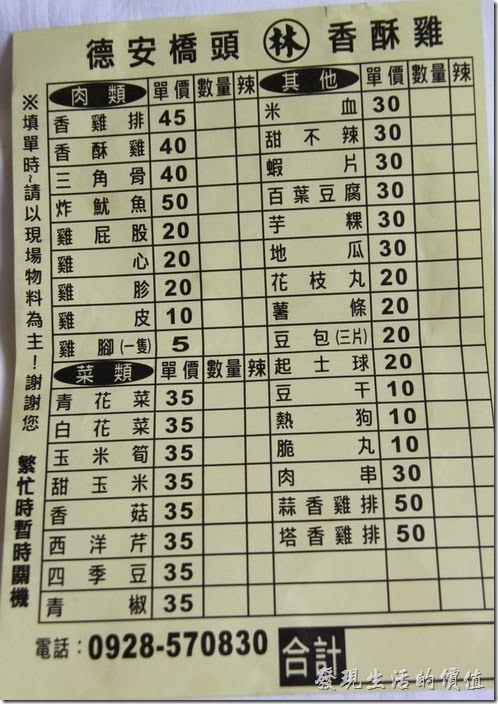 德安橋頭 林 香酥雞
※填單時~請以現場物料為主！謝謝您
繁忙時暫時關機
肉類 單價 數量 辣
香雞排 45
香酥雞 40
三角骨 40
炸魷魚 50
雞屁股 20
雞心 20
雞胗 20
雞皮 10
雞腳(一隻) 5
菜類 單價 數量 辣
青花菜 35
白花菜 35
玉米筍 35
甜玉米 35
香菇 35
西洋芹 35
四季豆 35
青椒 35
其他 單價 數量 辣
米血 30
甜不辣 30
蝦片 30
百葉豆腐 30
芋粿 30
地瓜 30
花枝丸 20
薯條 20
豆包(三片) 20
起士球 20
豆干 10
熱狗 10
脆丸 10
肉串 30
蒜香雞排 50
塔香雞排 50
電話：0928-570830
合計
發現生活的價值